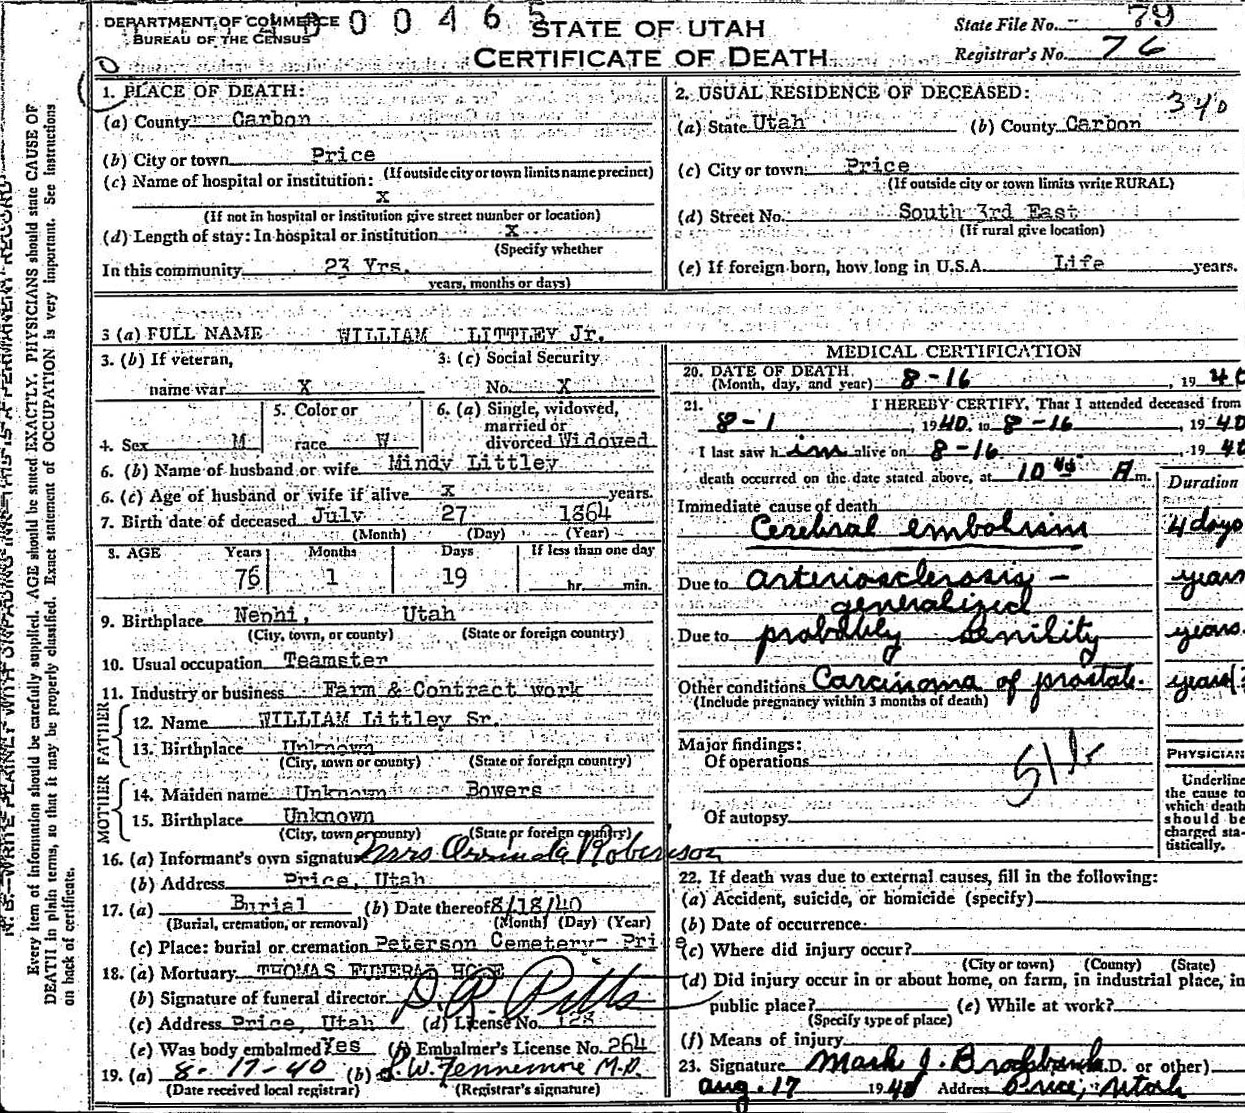 DEPARTMENT OF COMMERCE
BUREAU OF THE CENSUS
0 0 4 6 5
STATE OF UTAH
CERTIFICATE OF DEATH
State File No. 79
Registrar's No. 76
1. PLACE OF DEATH:
(a) County Carbon
(b) City or town Price
(If outside city or town limits name precinct)
(c) Name of hospital or institution:
X
(If not in hospital or institution give street number or location)
(d) Length of stay: In hospital or institution X
(Specify whether
In this community 23 Yrs.
years, months or days)
2. USUAL RESIDENCE OF DECEASED:
340
(a) State Utah (b) County Carbon
(c) City or town Price
(If outside city or town limits write RURAL)
(d) Street No. South 3rd East
(If rural give location)
(e) If foreign born, how long in U.S.A. Life years.
3 (a) FULL NAME WILLIAM LITTLEY Jr.
3. (b) If veteran,
name war X
3. (c) Social Security
No. X
4. Sex M
5. Color or
race W
6. (a) Single, widowed,
married or
divorced Widowed
6. (b) Name of husband or wife Mindy Littley
6. (c) Age of husband or wife if alive X years.
7. Birth date of deceased July 27 1864
(Month) (Day) (Year)
8. AGE Years Months Days If less than one day
76 1 19 hr. min.
9. Birthplace Nephi, Utah
(City, town, or county) (State or foreign country)
10. Usual occupation Teamster
11. Industry or business Farm & Contract work
FATHER
12. Name WILLIAM Littley Sr.
13. Birthplace Unknown
(City, town or county) (State or foreign country)
MOTHER
14. Maiden name Unknown Bowers
15. Birthplace Unknown
(City, town or county) (State or foreign country)
16. (a) Informant's own signature Mrs Robertson
(b) Address Price, Utah
17. (a) Burial (b) Date thereof 8/18/40
(Burial, cremation, or removal) (Month) (Day) (Year)
(c) Place: burial or cremation Peterson Cemetery- Price
18. (a) Mortuary THOMAS FUNERAL HOME
(b) Signature of funeral director D. R. Pitts
(c) Address Price, Utah (d) License No. 128
(e) Was body embalmed Yes (f) Embalmer's License No. 264
19. (a) 8-17-40 (b) W. Fennemore M.D.
(Date received local registrar) (Registrar's signature)
MEDICAL CERTIFICATION
20. DATE OF DEATH
(Month, day, and year) 8-16, 19 40
21. I HEREBY CERTIFY, That I attended deceased from
8-1, 1940, to 8-16, 1940
I last saw him alive on 8-16, 1940
death occurred on the date stated above, at 10 A m.
Duration
Immediate cause of death
Cerebral embolism 4 days
Due to arteriosclerosis - years
generalized
Due to probably senility years.
Other conditions Carcinoma of prostate. years(?
(Include pregnancy within 3 months of death)
Major findings:
Of operations
Of autopsy
PHYSICIAN
Underline
the cause to
which death
should be
charged sta-
tistically.
22. If death was due to external causes, fill in the following:
(a) Accident, suicide, or homicide (specify)
(b) Date of occurrence
(c) Where did injury occur?
(City or town) (County) (State)
(d) Did injury occur in or about home, on farm, in industrial place, in
public place? (e) While at work?
(Specify type of place)
(f) Means of injury
23. Signature Mark J. Brockbank (M.D. or other)
Aug. 17 1940 Address Price, Utah
N. B.—WRITE PLAINLY WITH UNFADING INK—THIS IS A PERMANENT RECORD
Every item of information should be carefully supplied. AGE should be stated EXACTLY. PHYSICIANS should state CAUSE OF
DEATH in plain terms, so that it may be properly classified. Exact statement of OCCUPATION is very important. See instructions
on back of certificate.